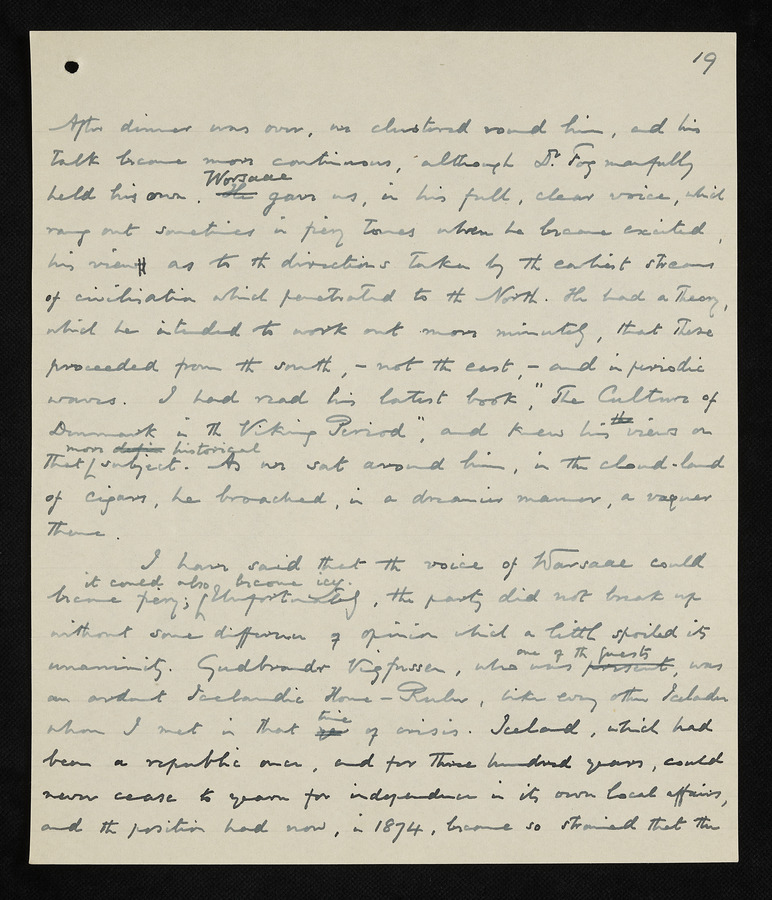 19
After dinner was over, we clustered round him, and his
talk became more continuous, although Dr. Fog manfully
Worsaae
held his own. He gave us, in his full, clear voice, which
rang out sometimes in fiery tones when he became excited,
his views as to the directions taken by the earliest streams
of civilisation which penetrated to the North. He had a theory,
which he intended to work out more minutely, that these
proceeded from the south, - not the east, - and in periodic
waves. I had read his latest book, "The Culture of
the
Denmark in the Viking Period", and knew his views on
more historical
that subject. As we sat around him, in the cloud-land
of cigars, he broached, in a dreamier manner, a vaguer
theme.
I have said that the voice of Worsaae could
it could also become icy.
become fiery; Unfortunately, the party did not break up
without some difference of opinion which a little spoiled its
one of the guests
unanimity. Gudbrandr Vigfussen, who was present, was
an ardent Icelandic Home-Ruler, like every other Icelander
time
whom I met in that of crisis. Iceland, which had
been a republic once, and for three hundred years, could
never cease to yearn for independence in its own local affairs,
and the position had now, in 1874, become so strained that the